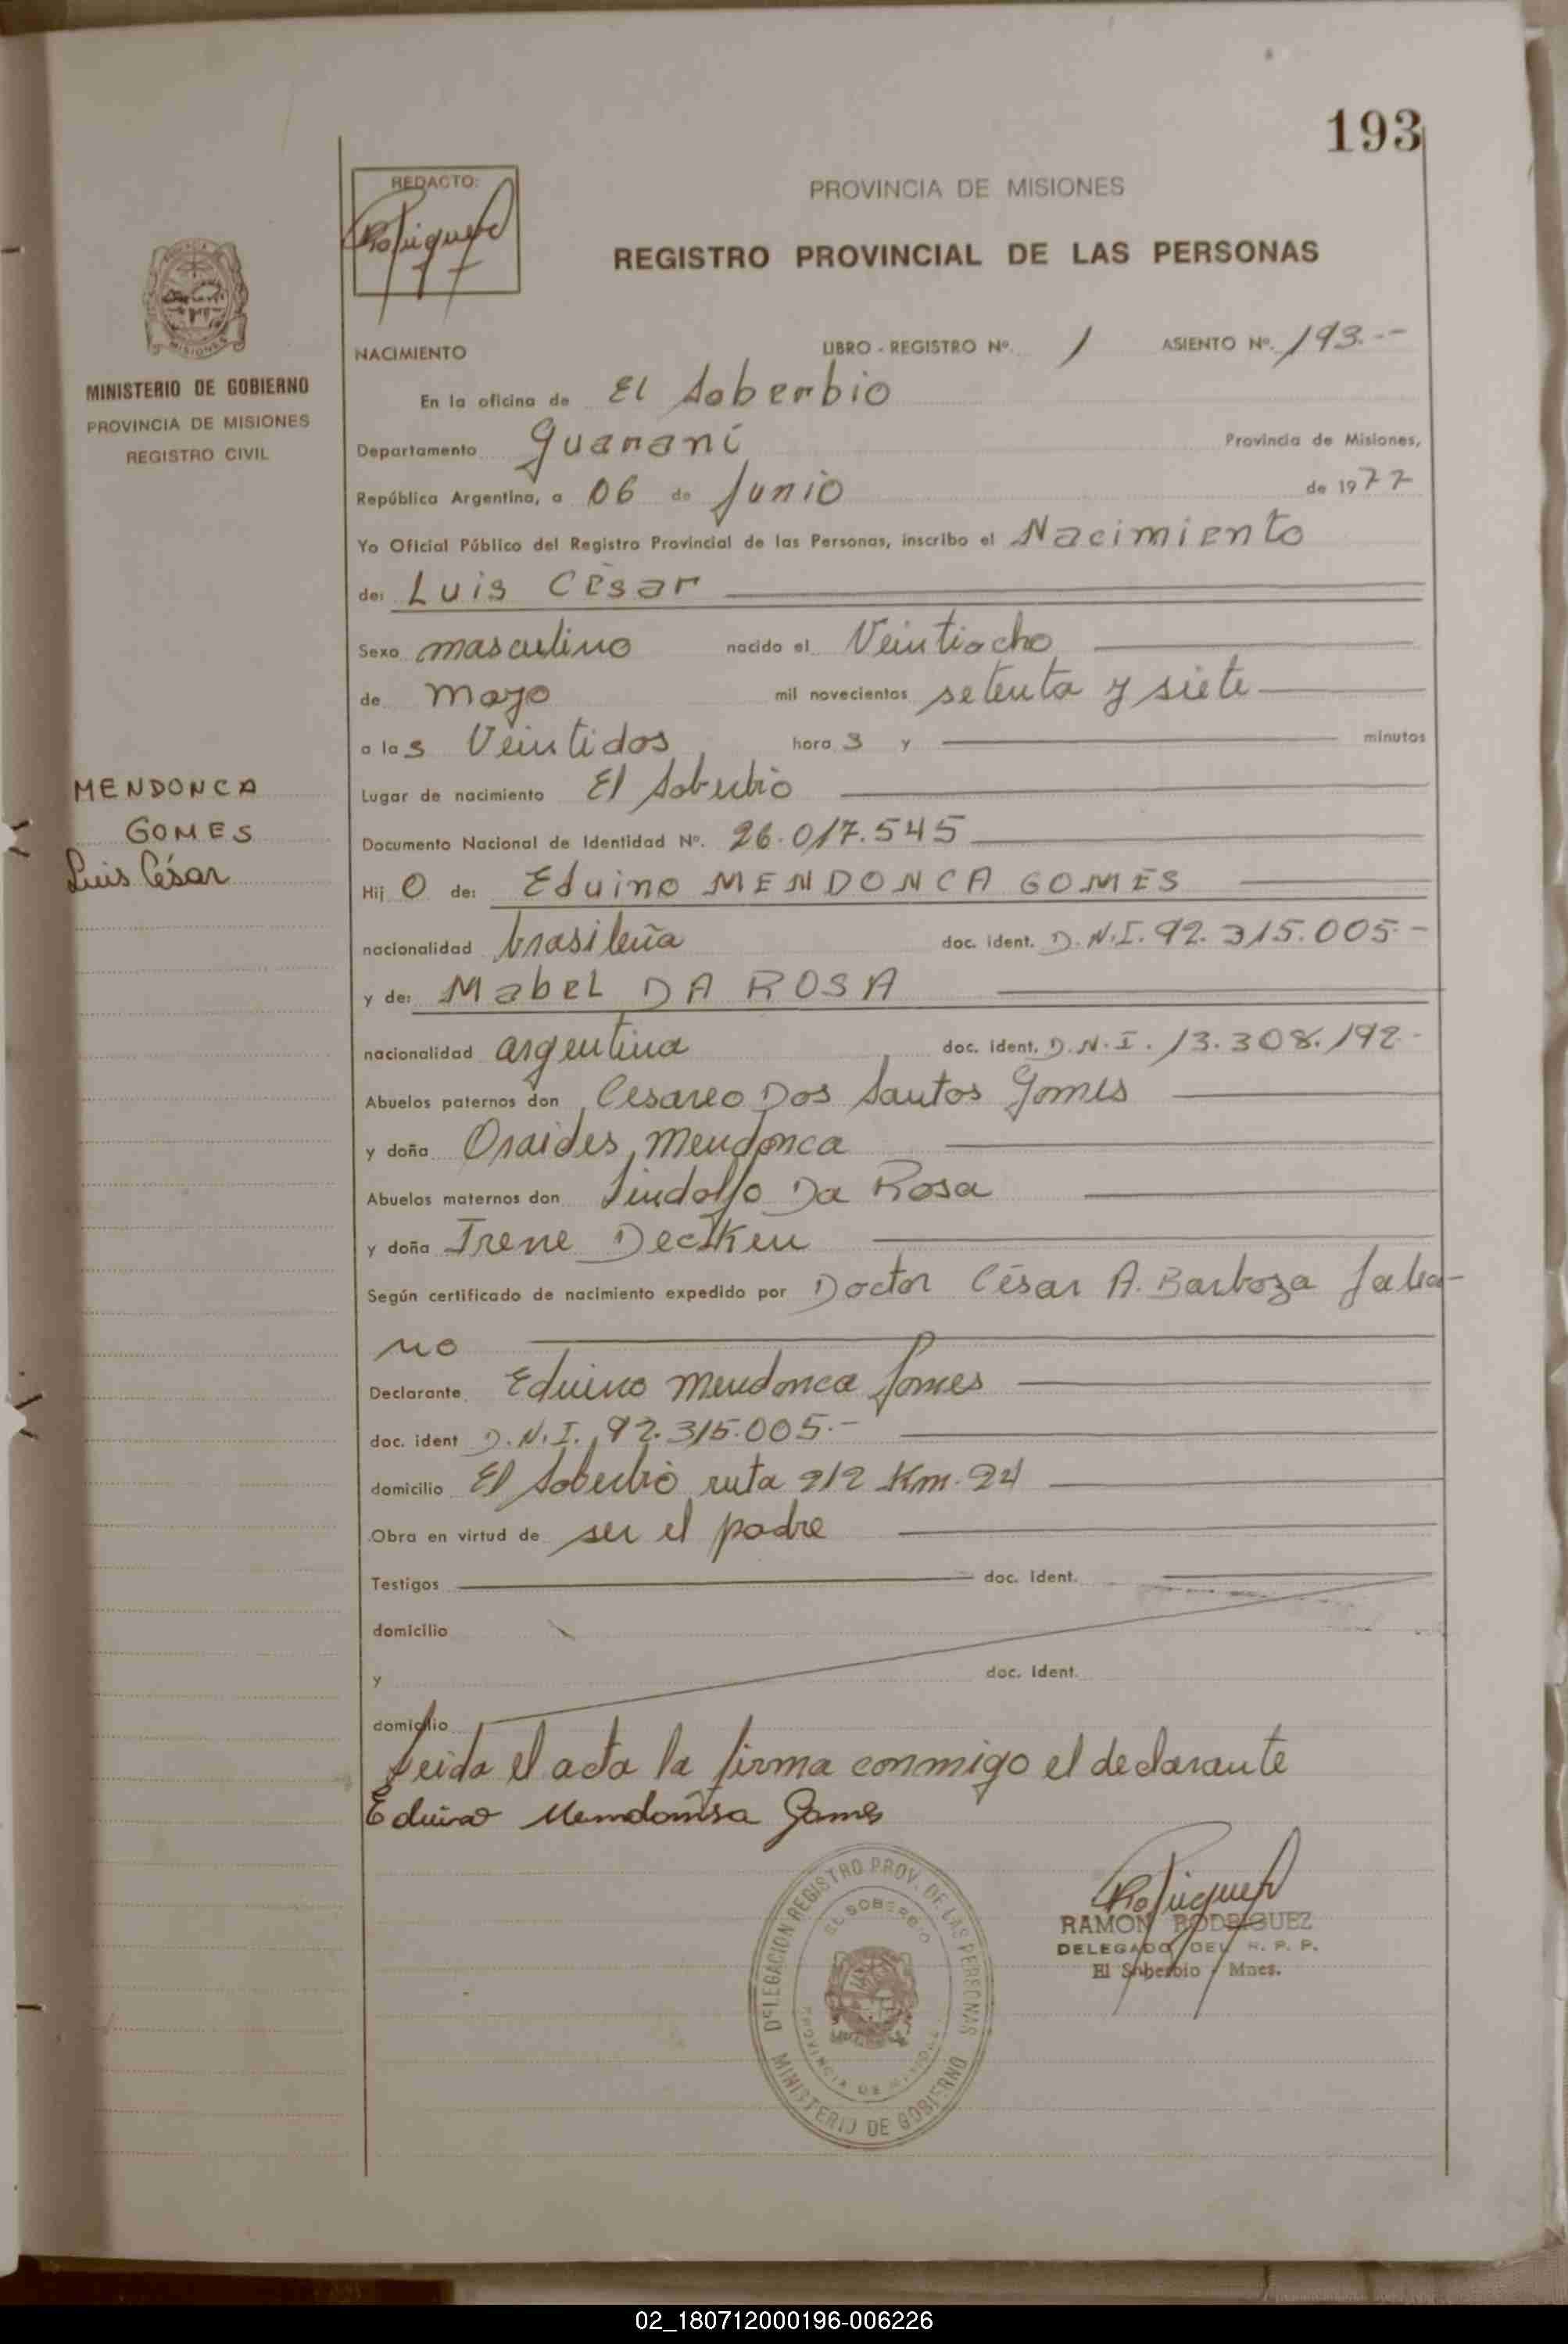 193
REDACTO:
PROVINCIA DE MISIONES
REGISTRO PROVINCIAL DE LAS PERSONAS
MISIONES
MINISTERIO DE GOBIERNO
PROVINCIA DE MISIONES
REGISTRO CIVIL
NACIMIENTO LIBRO - REGISTRO Nº. 1 ASIENTO Nº. 193.--
En la oficina de El Soberbio
Departamento Guaraní Provincia de Misiones,
República Argentina, a 06 de Junio de 1977
Yo Oficial Público del Registro Provincial de las Personas, inscribo el Nacimiento
de: Luis César
Sexo masculino nacido el Veintiocho
de mayo mil novecientos setenta y siete
a las Veintidos horas y minutos
MENDONCA
GOMES
Luis César
Lugar de nacimiento El Soberbio
Documento Nacional de Identidad Nº. 26.017.545
Hijo de: Eduino MENDONCA GOMES
nacionalidad brasileña doc. ident. D.N.I. 92.315.005.-
y de: Mabel DA ROSA
nacionalidad argentina doc. ident. D.N.I. 13.308.192.-
Abuelos paternos don Cesareo Dos Santos Gomes
y doña Oraides Mendonca
Abuelos maternos don Lindolfo Da Rosa
y doña Irene
Según certificado de nacimiento expedido por Doctor César A. Barboza
no
Declarante Eduino Mendonca Gomes
doc. ident D.N.I. 92.315.005.-
domicilio El Soberbio ruta 212 Km. 24
Obra en virtud de ser el padre
Testigos doc. Ident.
domicilio
y doc. Ident.
domicilio
Leida el acta la firma conmigo el declarante
Eduino Mendonsa Gomes
DELEGACION REGISTRO PROV. DE LAS PERSONAS
EL SOBERBIO
PROVINCIA DE MISIONES
MINISTERIO DE GOBIERNO
RAMON RODRIGUEZ
DELEGADO DEL R. P. P.
El Soberbio - Mnes.
02_180712000196-006226